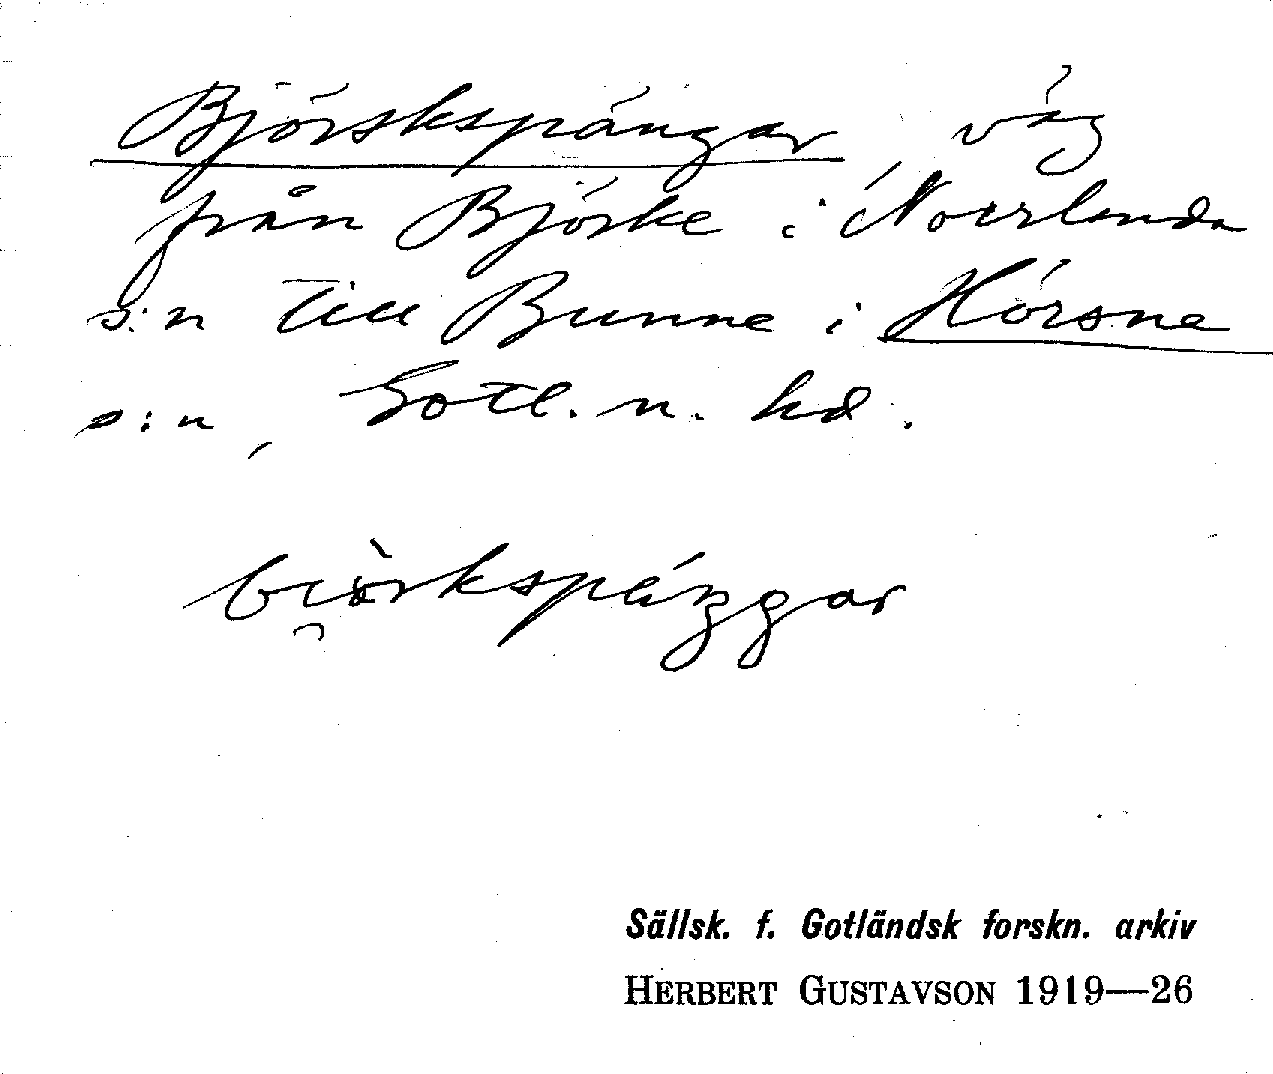 Björskspängar, väg
från Björke i Norrlanda
s:n till Bunne i Hörsne
s:n, Gotl. n. hd.
Sällsk. f. Gotländsk forskn. arkiv
HERBERT GUSTAVSON 1919—26